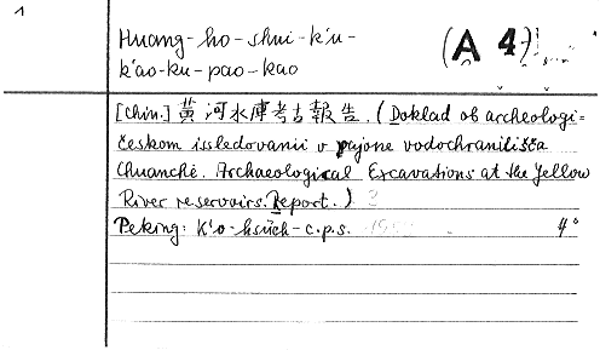 1
Huang-ho-shui-k'u-
k'ao-ku-pao-kao
(A 4)
[Chin.] 黄河水庫考古報告. (Doklad ob archeologi=
českom issledovanii v rajone vodochranilišča
Chuanchè. Archaeological Excavations at the Yellow
River reservoirs. Report.) 3
Peking: K'o-hsüeh-c.p.s. 4°